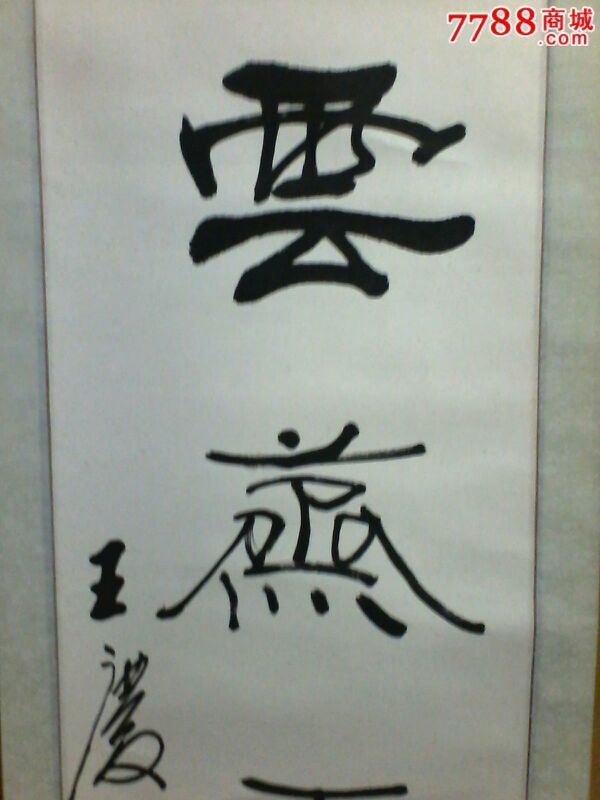 7788商城
.com
雲
蒸
王